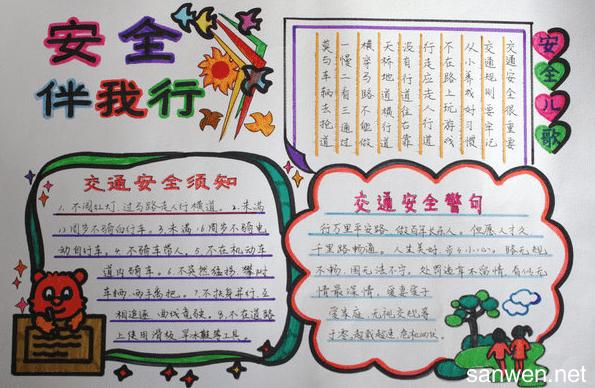 安全
伴我行
安全儿歌
交通安全很重要
交通规则要牢记
从小养成好习惯
不在路上玩游戏
行走应走人行道
没有行道往右靠
天桥地道横行道
横穿马路不能做
一慢二看三通过
莫与车辆去抢道
交通安全须知
1. 不闯红灯 过马路走人行横道。2. 未满
12周岁不骑自行车。3. 未满16周岁不骑电
动自行车。4. 不骑车带人。5. 不在机动车
道内骑车。6. 不突然猛拐 攀附
车辆、两手离把。7. 不扶身并行、互
相追逐 曲线竞驶。8. 不在道路
上使用滑板 旱冰鞋等工具。
交通安全警句
行万里平安路 做百年长乐人。但愿人长久
千里路畅通。人生美好 步步小心。路无规
不畅 国无法不宁。处罚违章不留情 看似无
情最深情。爱妻爱子
爱家庭 无视交规等
于零 超载超速 危机四伏
sanwen.net